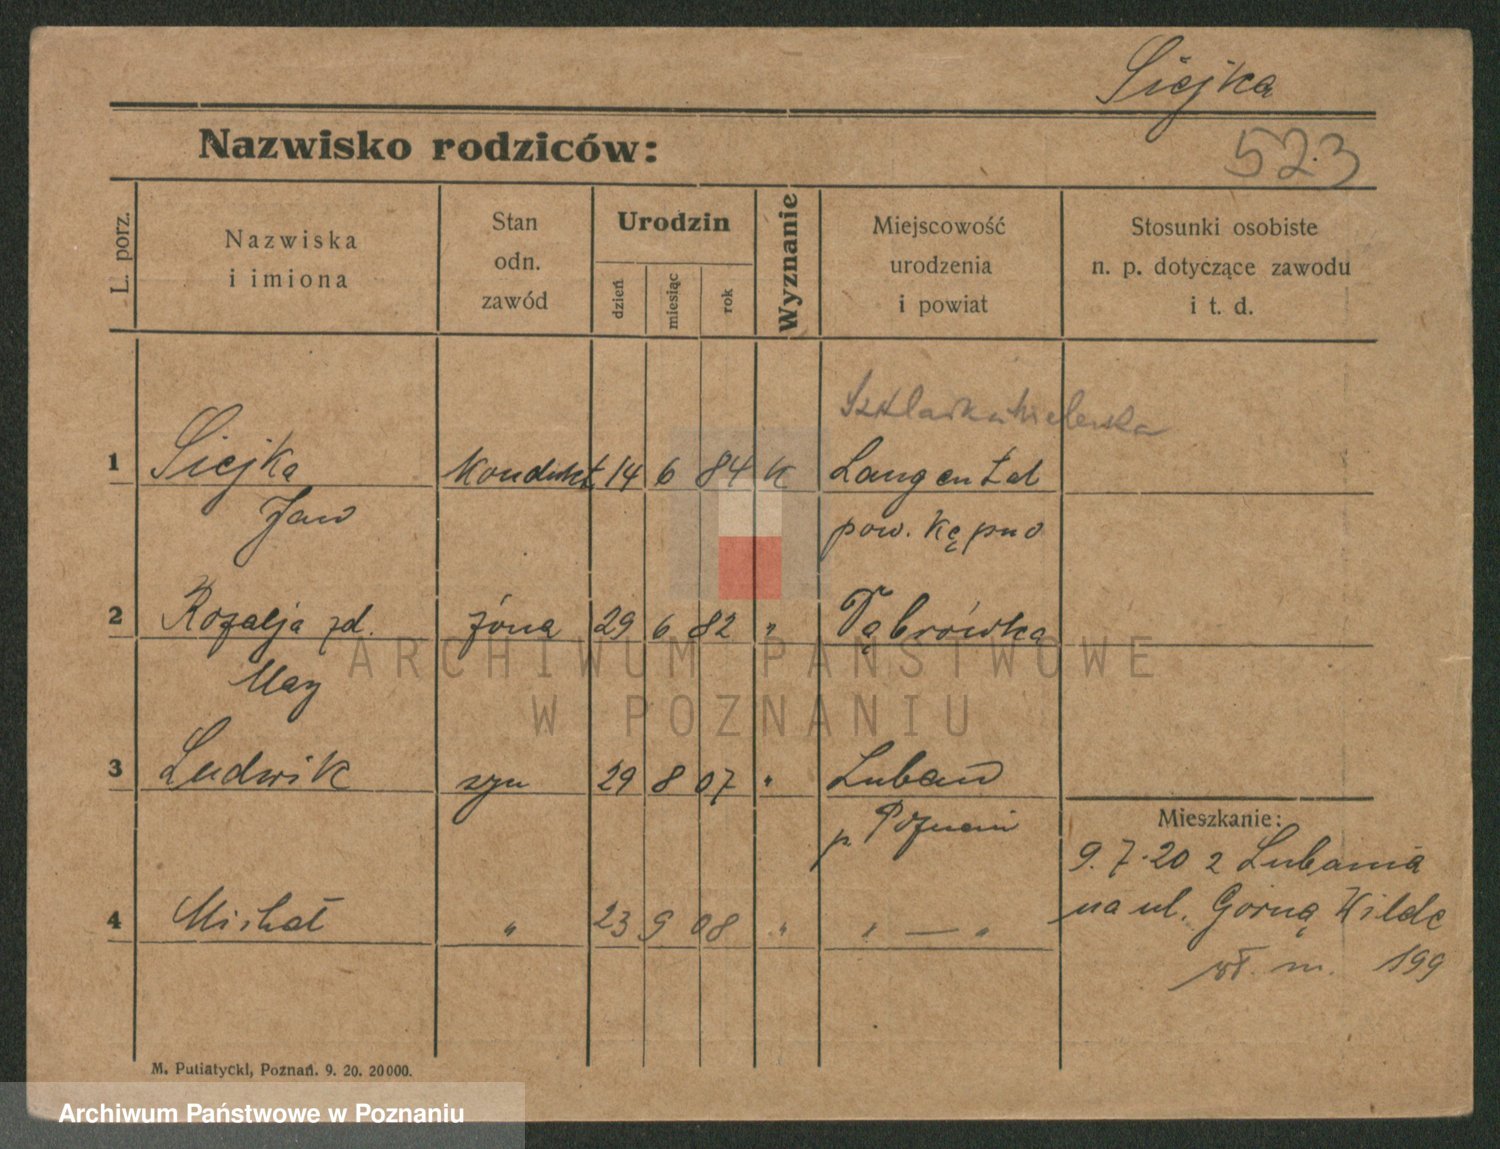 Siejka
523
Nazwisko rodziców:
L. porz.
Nazwiska
i imiona
Stan
odn.
zawód
Urodzin
dzień
miesiąc
rok
Wyznanie
Miejscowość
urodzenia
i powiat
Stosunki osobiste
n. p. dotyczące zawodu
i t. d.
1 Siejka kondukt 14 6 84 k Langental
Jan pow. Kępno
2 Rozalja zd. żona 29 6 82 " Dąbrówka
May
3 Ludwik syn 29 8 07 " Luban
p. Poznań
Mieszkanie:
9.7.20 z Lubania
na ul. Górną Wildę
4 Michał " 23 9 08 " " — "
wł. m. 199
M. Putiatycki, Poznań. 9. 20. 20000.
ARCHIWUM PAŃSTWOWE
W POZNANIU
Archiwum Państwowe w Poznaniu